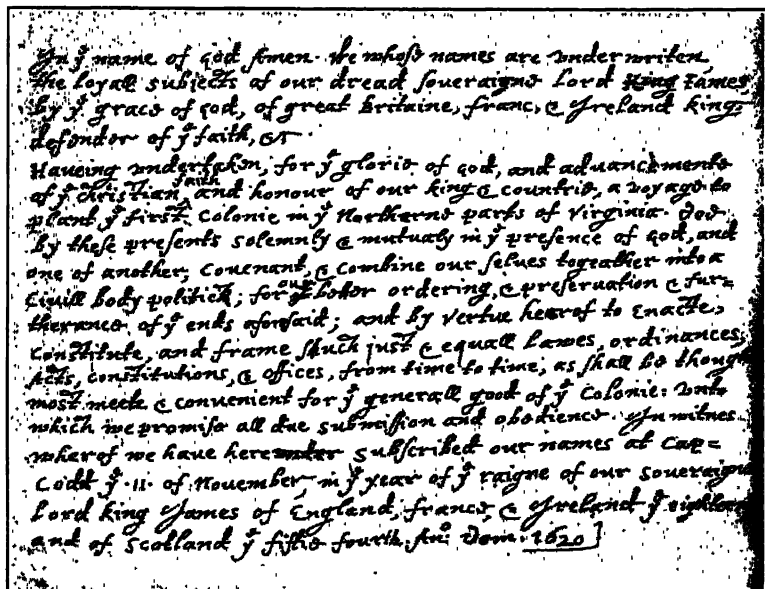 In yͤ name of god Amen· We whose names are vnderwriten,
the loyall subjects of our dread soveraigne Lord King James
by yͤ grace of god, of great Britaine, franc, & Ireland king,
defender of yͤ faith, &c
Haveing vndertaken, for yͤ glorie of god, and advancemente
of yͤ christian faith and honour of our king & countrie, a voyage to
plant yͤ first colonie in yͤ Northerne parts of Virginia· doe
by these presents solemnly & mutualy in yͤ presence of god, and
one of another, covenant, & combine our selves togeather into a
Civill body politick; for our better ordering, & preservation & fur=
therance of yͤ ends aforesaid; and by vertue hearof to enacte,
constitute, and frame shuch just & equall lawes, ordinances,
Acts, constitutions, & offices, from time to time, as shall be thought
most meete & convenient for yͤ generall good of yͤ Colonie: vnto
which we promise all due submission and obedience· In witnes
wherof we have here vnder subscribed our names at Cap=
Codd yͤ ·11· of November, in yͤ year of yͤ raigne of our soveraigne
Lord king James of England, france, & Ireland yͤ eighteen
and of Scotland yͤ fiftie fourth. Anº: Dom· 1620]